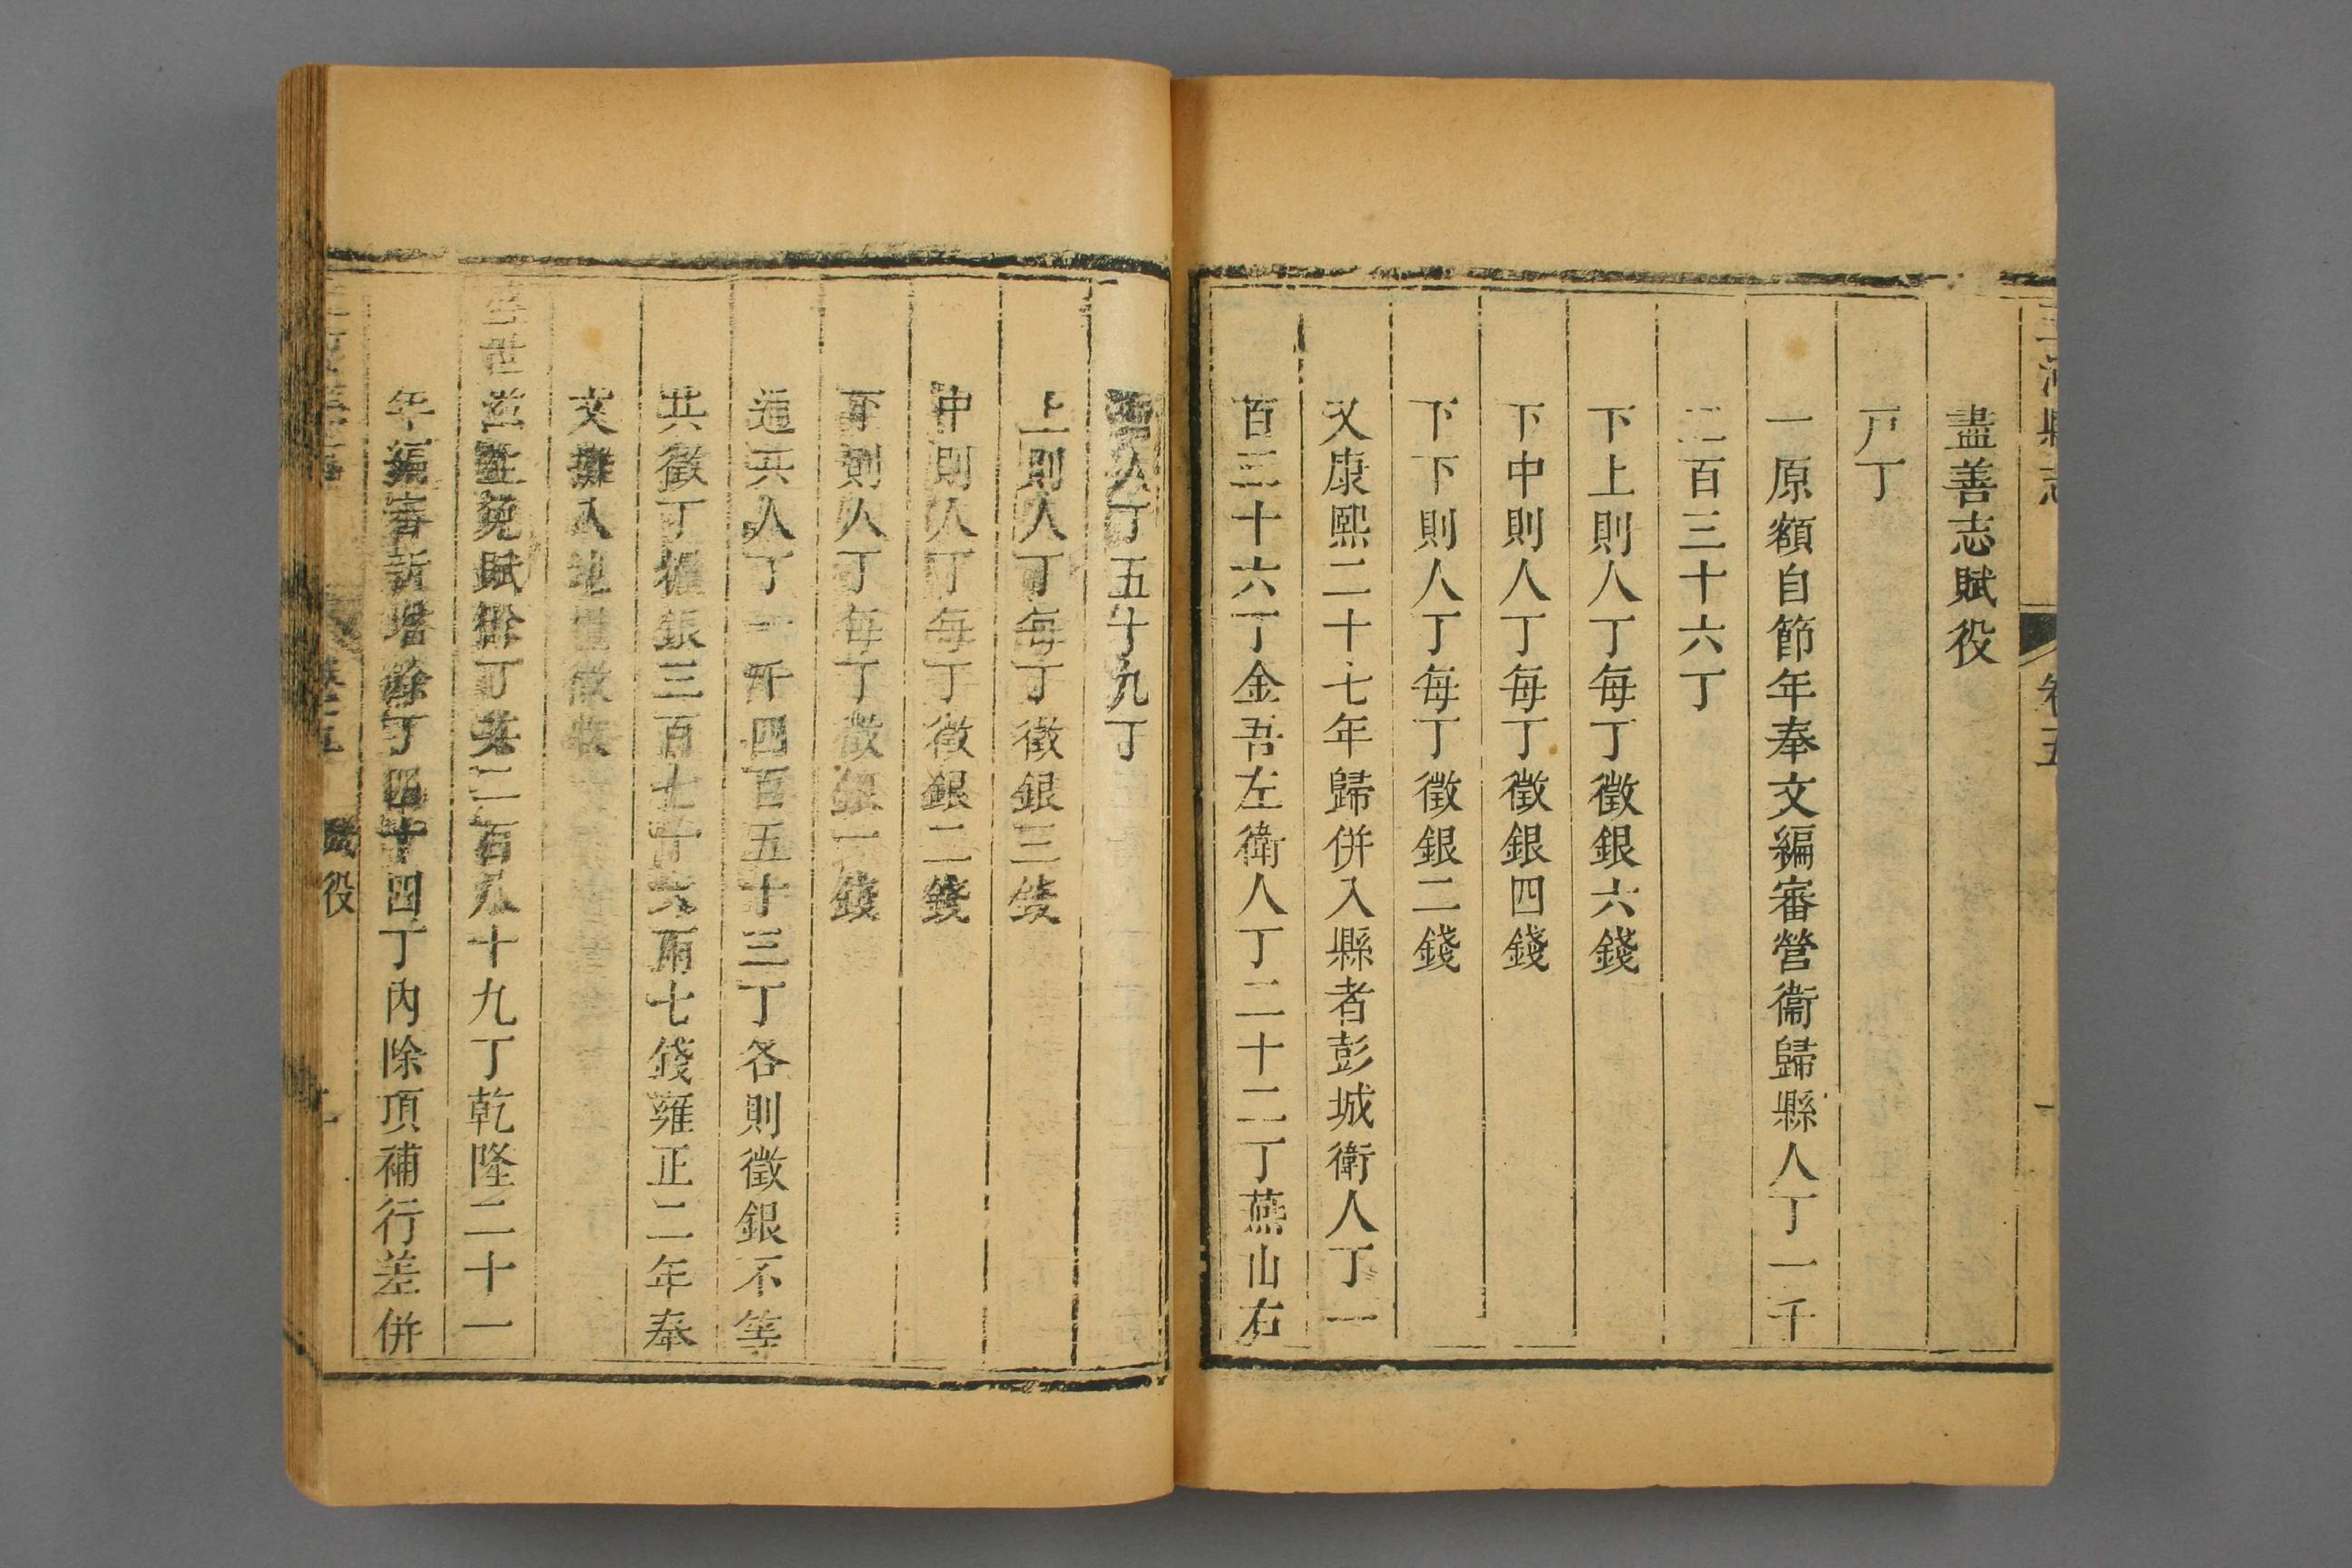 三河縣志 卷五 一
盡善志賦役
戸丁
一原額自節年奉文編審營衞歸縣人丁一千
二百三十六丁
下上則人丁每丁徵銀六錢
下中則人丁每丁徵銀四錢
下下則人丁每丁徵銀二錢
又康熙二十七年歸併入縣者彭城衛人丁一
百三十六丁金吾左衛人丁二十二丁燕山右
人丁五十九丁
上則人丁每丁徵銀三錢
中則人丁每丁徵銀二錢
下則人丁每丁徵銀一錢
通共人丁一千四百五十三丁各則徵銀不等
共徵丁銀三百七十六兩七錢雍正二年奉
文攤入地糧徵收
盛世滋生免賦餘丁共二百八十九丁乾隆二十一
年編審新增餘丁四十四丁內除頂補行差併
卷五 賦役